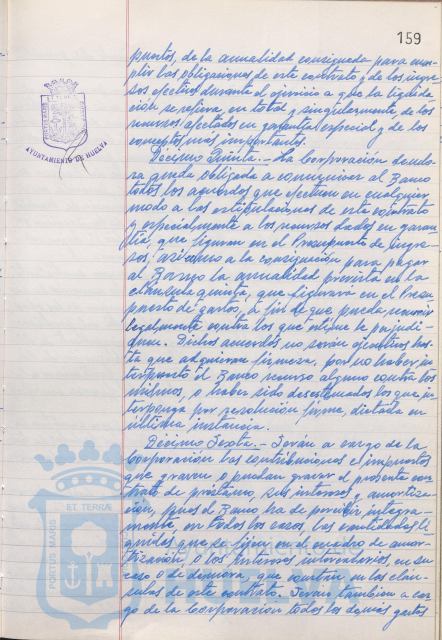 159
puestos, de la anualidad consignada para cum-
plir las obligaciones de este contrato y de los ingre-
sos efectivos durante el ejercicio a que la liquida-
ción se refiera, en total y singularmente de los
recursos afectados en garantía especial y de los
conceptos mas importantes.
Décimo Quinta.- La Corporación deudo-
ra queda obligada a comunicar al Banco
todos los acuerdos que afecten en cualquier
modo a las estipulaciones de este contrato
y especialmente a los recursos dados en garan-
tía, que figuran en el Presupuesto de ingre-
sos, así como a la consignación para pagar
al Banco la anualidad prevista en la
cláusula quinta, que figurará en el Presu-
puesto de gastos, a fin de que pueda recurrir
legalmente contra los que estime le perjudi-
quen. Dichos acuerdos no serán ejecutivos has-
ta que adquieran firmeza, por no haber in-
terpuesto el Banco recurso alguno contra los
mismos, o haber sido desestimados los que in-
terponga por resolución firme, dictada en
última instancia.
Décimo Sexta.- Serán a cargo de la
Corporación las contribuciones e impuestos
que graven o puedan gravar el presente con-
trato de préstamo, sus intereses y amortiza-
ción, pues el Banco ha de percibir íntegra-
mente, en todos los casos, las cantidades lí-
quidas que se fijen en el cuadro de amor-
tización, o los intereses intercalarios, en su
caso, o de demora, que constan en las cláu-
sulas de este contrato. Serán también a car-
go de la Corporación todos los demás gastos
AYUNTAMIENTO DE HUELVA
PORTUS MARIS ET TERRÆ